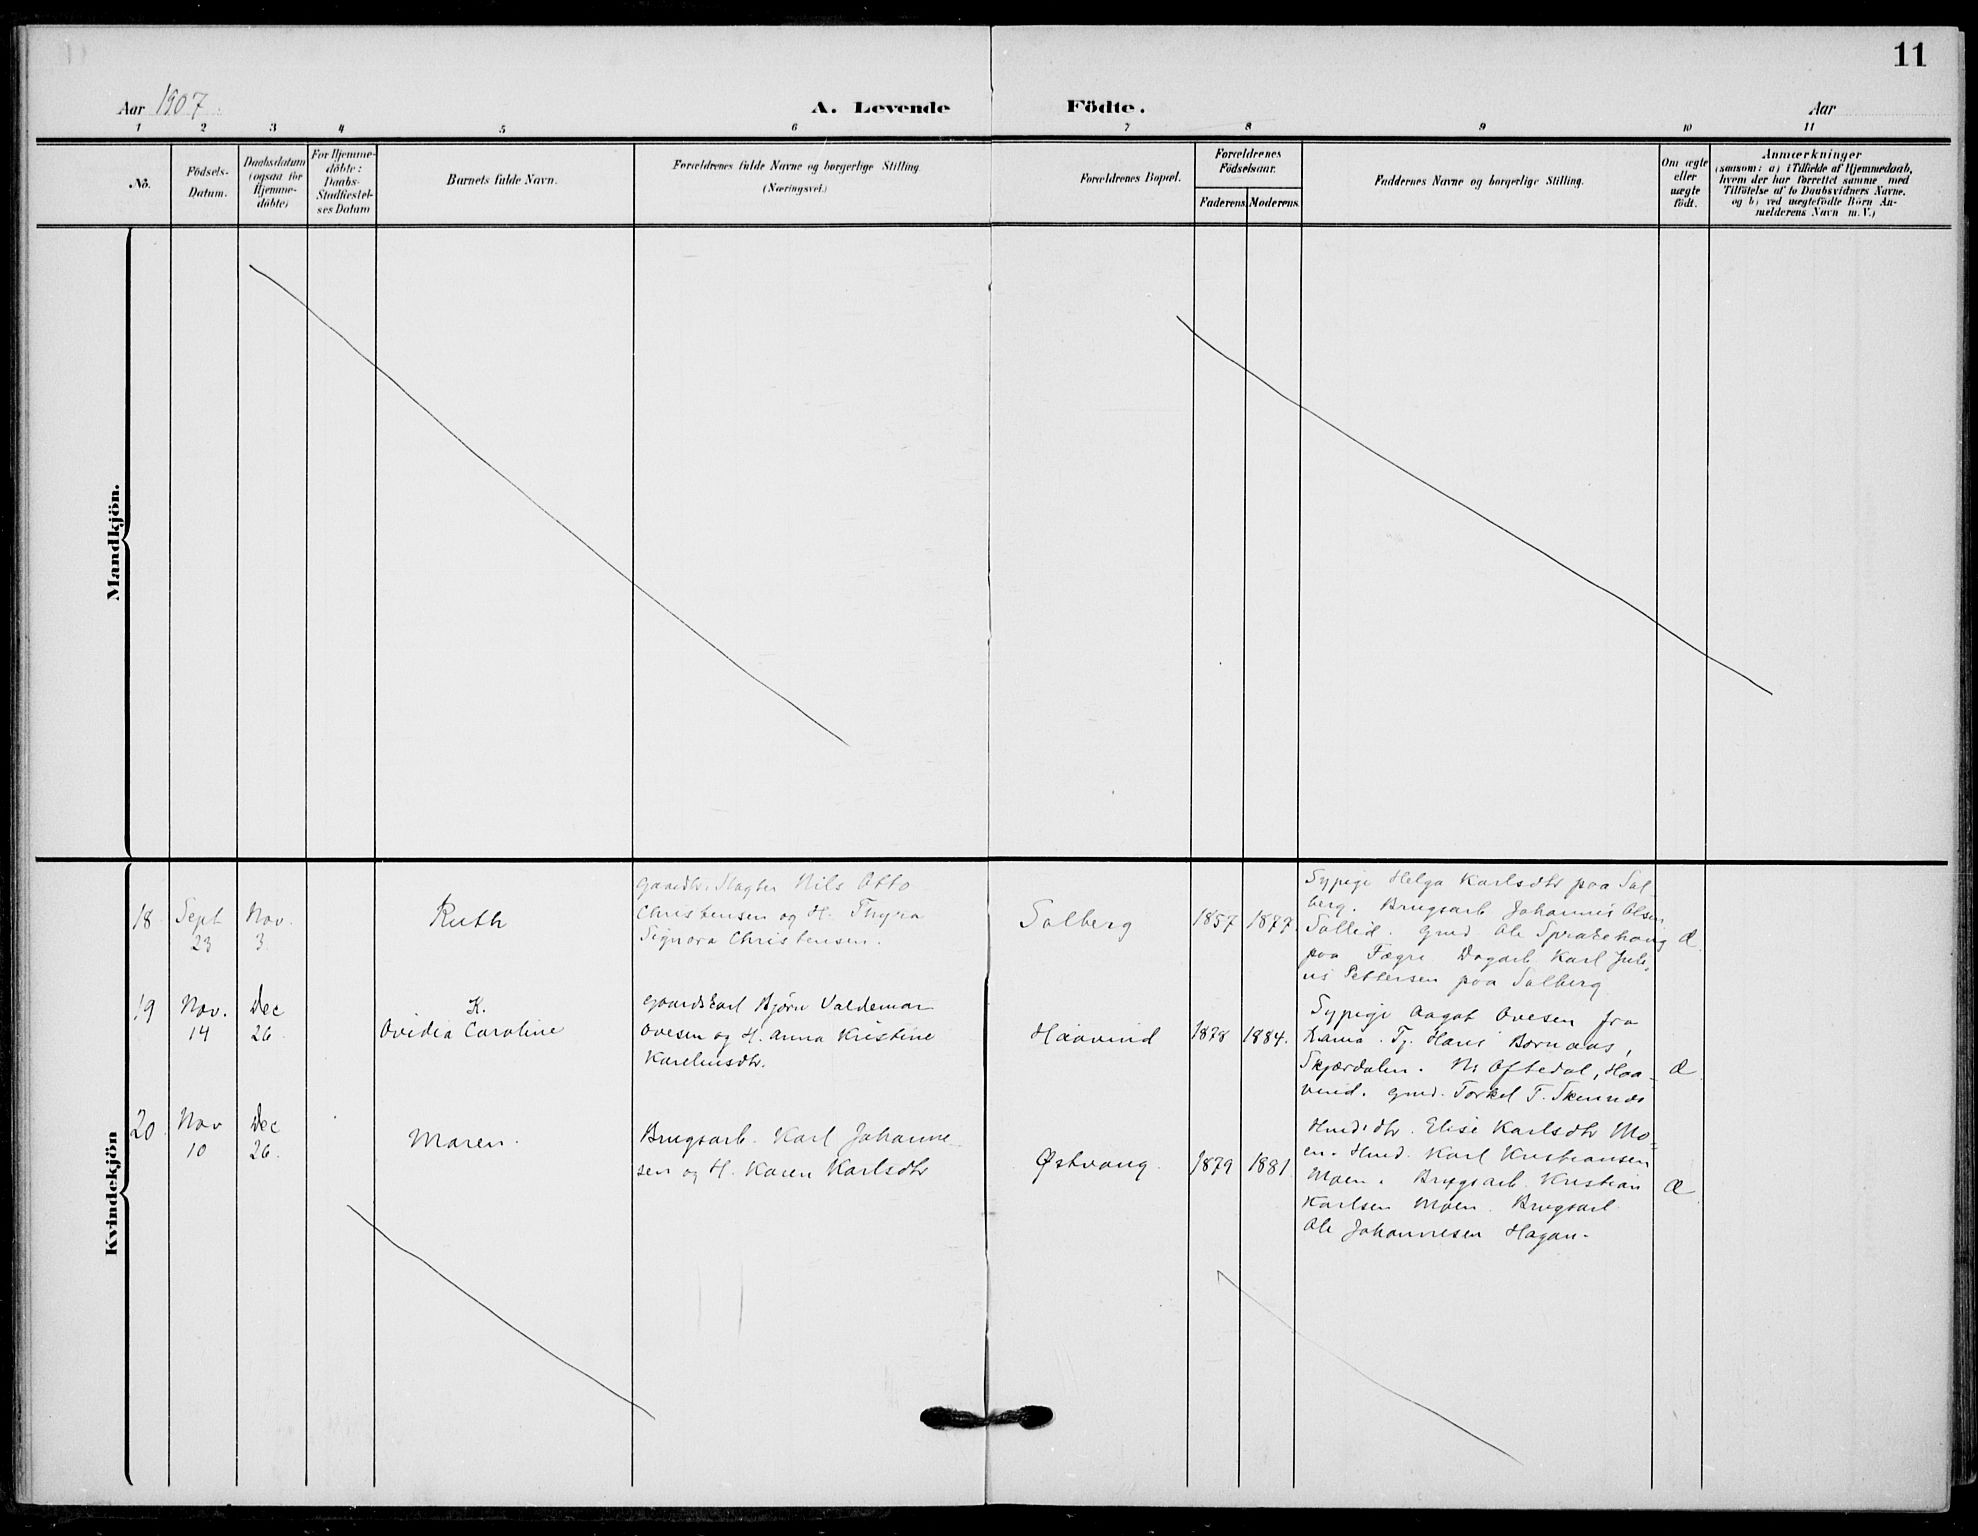 11
Aar 1907
A. Levende Födte.
Aar
1 2 3 4 5 6 7 8 9 10 11
No.
Födsels-
Datum.
Daabsdatum
(ogsaa for
Hjemme-
döbte)
For Hjemme-
döbte:
Daabs-
Stadfæstel-
ses Datum
Barnets fulde Navn.
Forældrenes fulde Navne og borgerlige Stilling
(Næringsvei.)
Forældrenes Bopæl.
Forældrenes
Födselsaar.
Faderens. Moderens.
Faddernes Navne og borgerlige Stilling.
Om ægte
eller
uægte
födt.
Anmærkninger
(saasom: a) i Tilfælde af Hjemmedaab,
hvem der har forrettet samme med
Tilföielse af to Daabsvidners Navne.
og b) ved uægtefödte Börn An-
melderens Navn m. V.)
Mandkjön.
Kvindekjön
18
Sept
23
Nov.
3.
Ruth
Gaardbr. Slagter Nils Otto
Christensen og H. Thyra
Signora Christensen.
Solberg
1857
1877.
Sypige Helga Karlsdtr paa Sol-
berg. Brugsarb Johannes Olsen
Sollid. Gmd. Ole
paa Fægri. Dagarb. Karl Juli-
us Pettersen paa Solberg
Æ
19
Nov.
14
Dec
26.
K.
Ovidia Caroline
Gaardskarl Bjørn Valdemar
Ovesen og H. Anna Kristine
Karelinsdtr.
Haavind
1878
1884.
Sypige Aagot Ovesen fra
Tj. Hans Bornaas,
Skjærdalen. M Oftedal, Haa-
vind. Gmd. Torkel T.
Æ
20
Nov
10
Dec
26.
Maren.
Brugsarb. Karl Johanne-
sen og H. Karen Karlsdtr
Østvang.
1879
1881
Husmdtr. Elise Karlsdtr Mo-
en. Husmd. Karl Kristiansen
Moen. Brugsarb. Kristian
Karlsen Moen. Brugsarb.
Ole Johannesen Hagan.
Æ